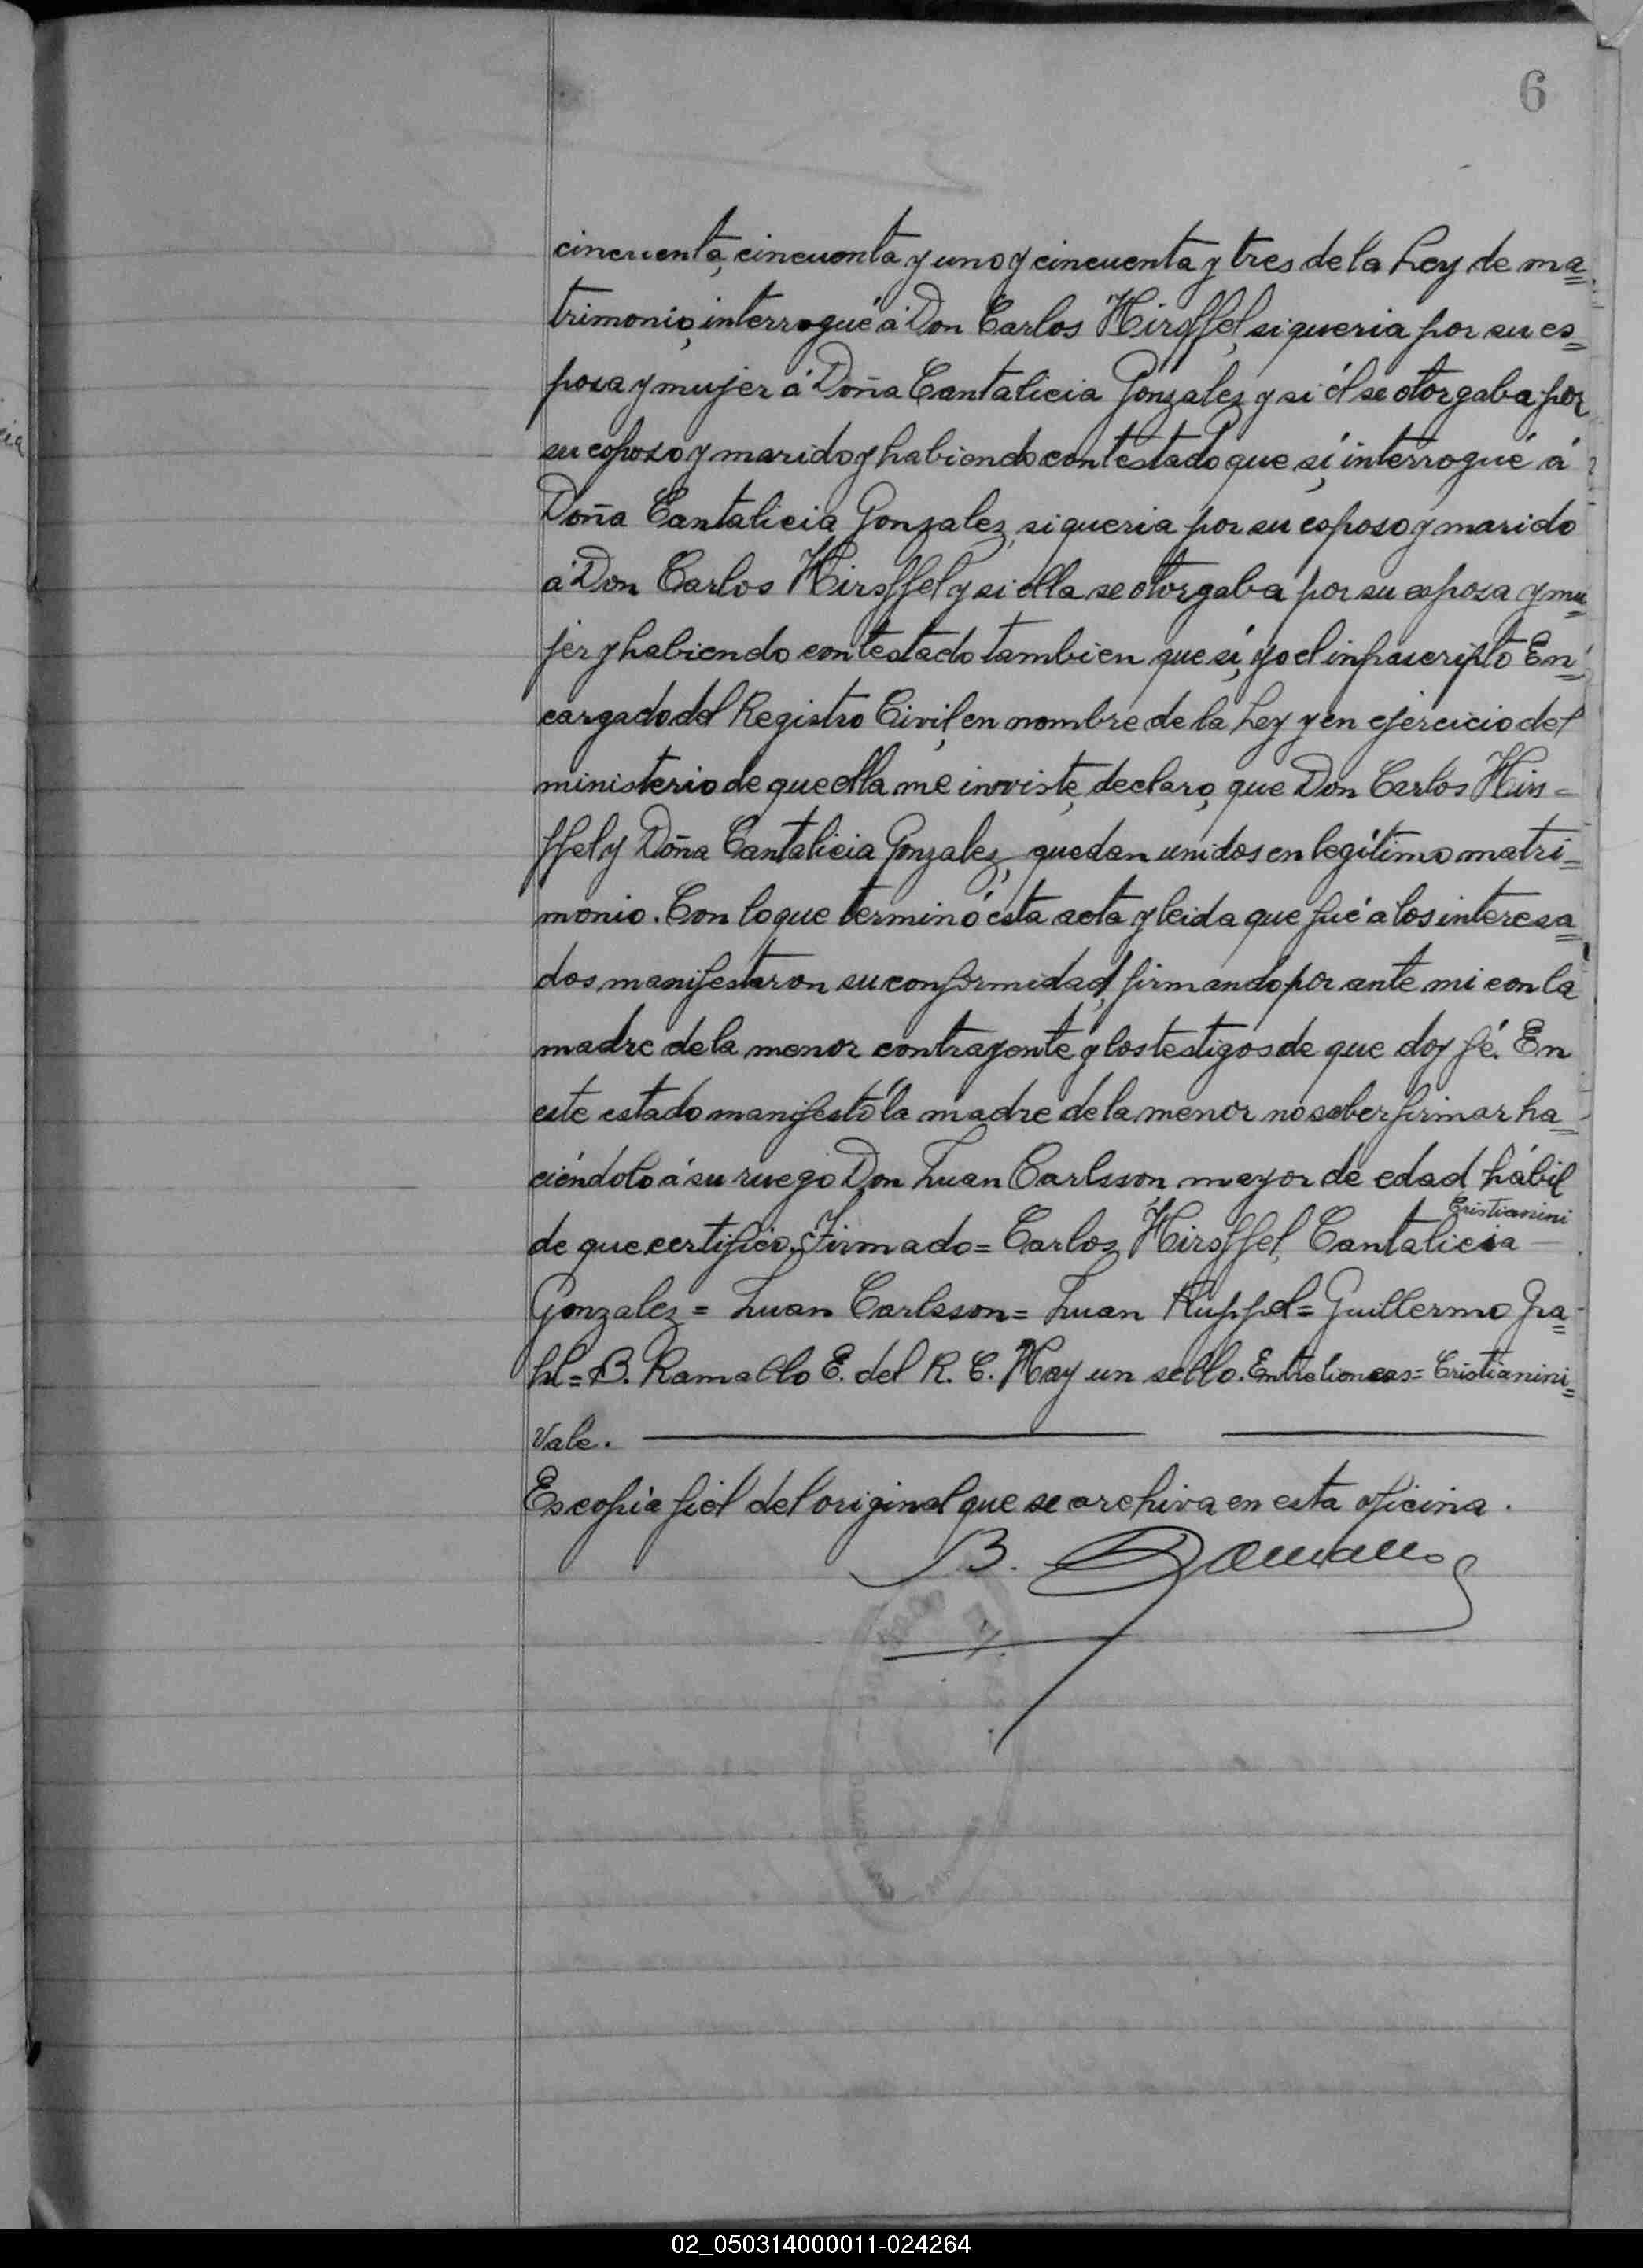 6
cincuenta, cincuenta y uno y cincuenta y tres de la Ley de ma=
trimonio, interrogué á Don Carlos Hirsffel, si queria por su es=
posa y mujer á Doña Cantalicia Gonzalez y si él se otorgaba por
su esposo y marido y habiendo contestado que sí, interrogué á
Doña Cantalicia Gonzalez, si queria por su esposo y marido
á Don Carlos Hirsffel y si ella se otorgaba por su esposa y mu=
jer y habiendo contestado tambien que sí, yo el infrascripto En=
cargado del Registro Civil, en nombre de la Ley y en ejercicio del
ministerio de que ella me inviste, declaro, que Don Carlos Hirs=
ffel y Doña Cantalicia Gonzalez, quedan unidos en legítimo matri=
monio. Con lo que terminó ésta acta y leida que fué á los interesa=
dos, manifestaron su conformidad, firmando por ante mi con la
madre de la menor contrayente y los testigos de que doy fé. En
este estado manifestó la madre de la menor no saber firmar ha=
ciéndolo á su ruego Don Juan Carlsson mayor de edad hábil
Cristianini
de que certifico. Firmado= Carlos Hirsffel, Cantalicia
Gonzalez = Juan Carlsson= Juan Ruppel= Guillermo Gra=
hl= B. Ramallo E. del R. C. Hay un sello. Entre lineas= Cristianini=
Vale.
Es copia fiel del original que se archiva en esta oficina.
B. Ramallo
02_050314000011-024264